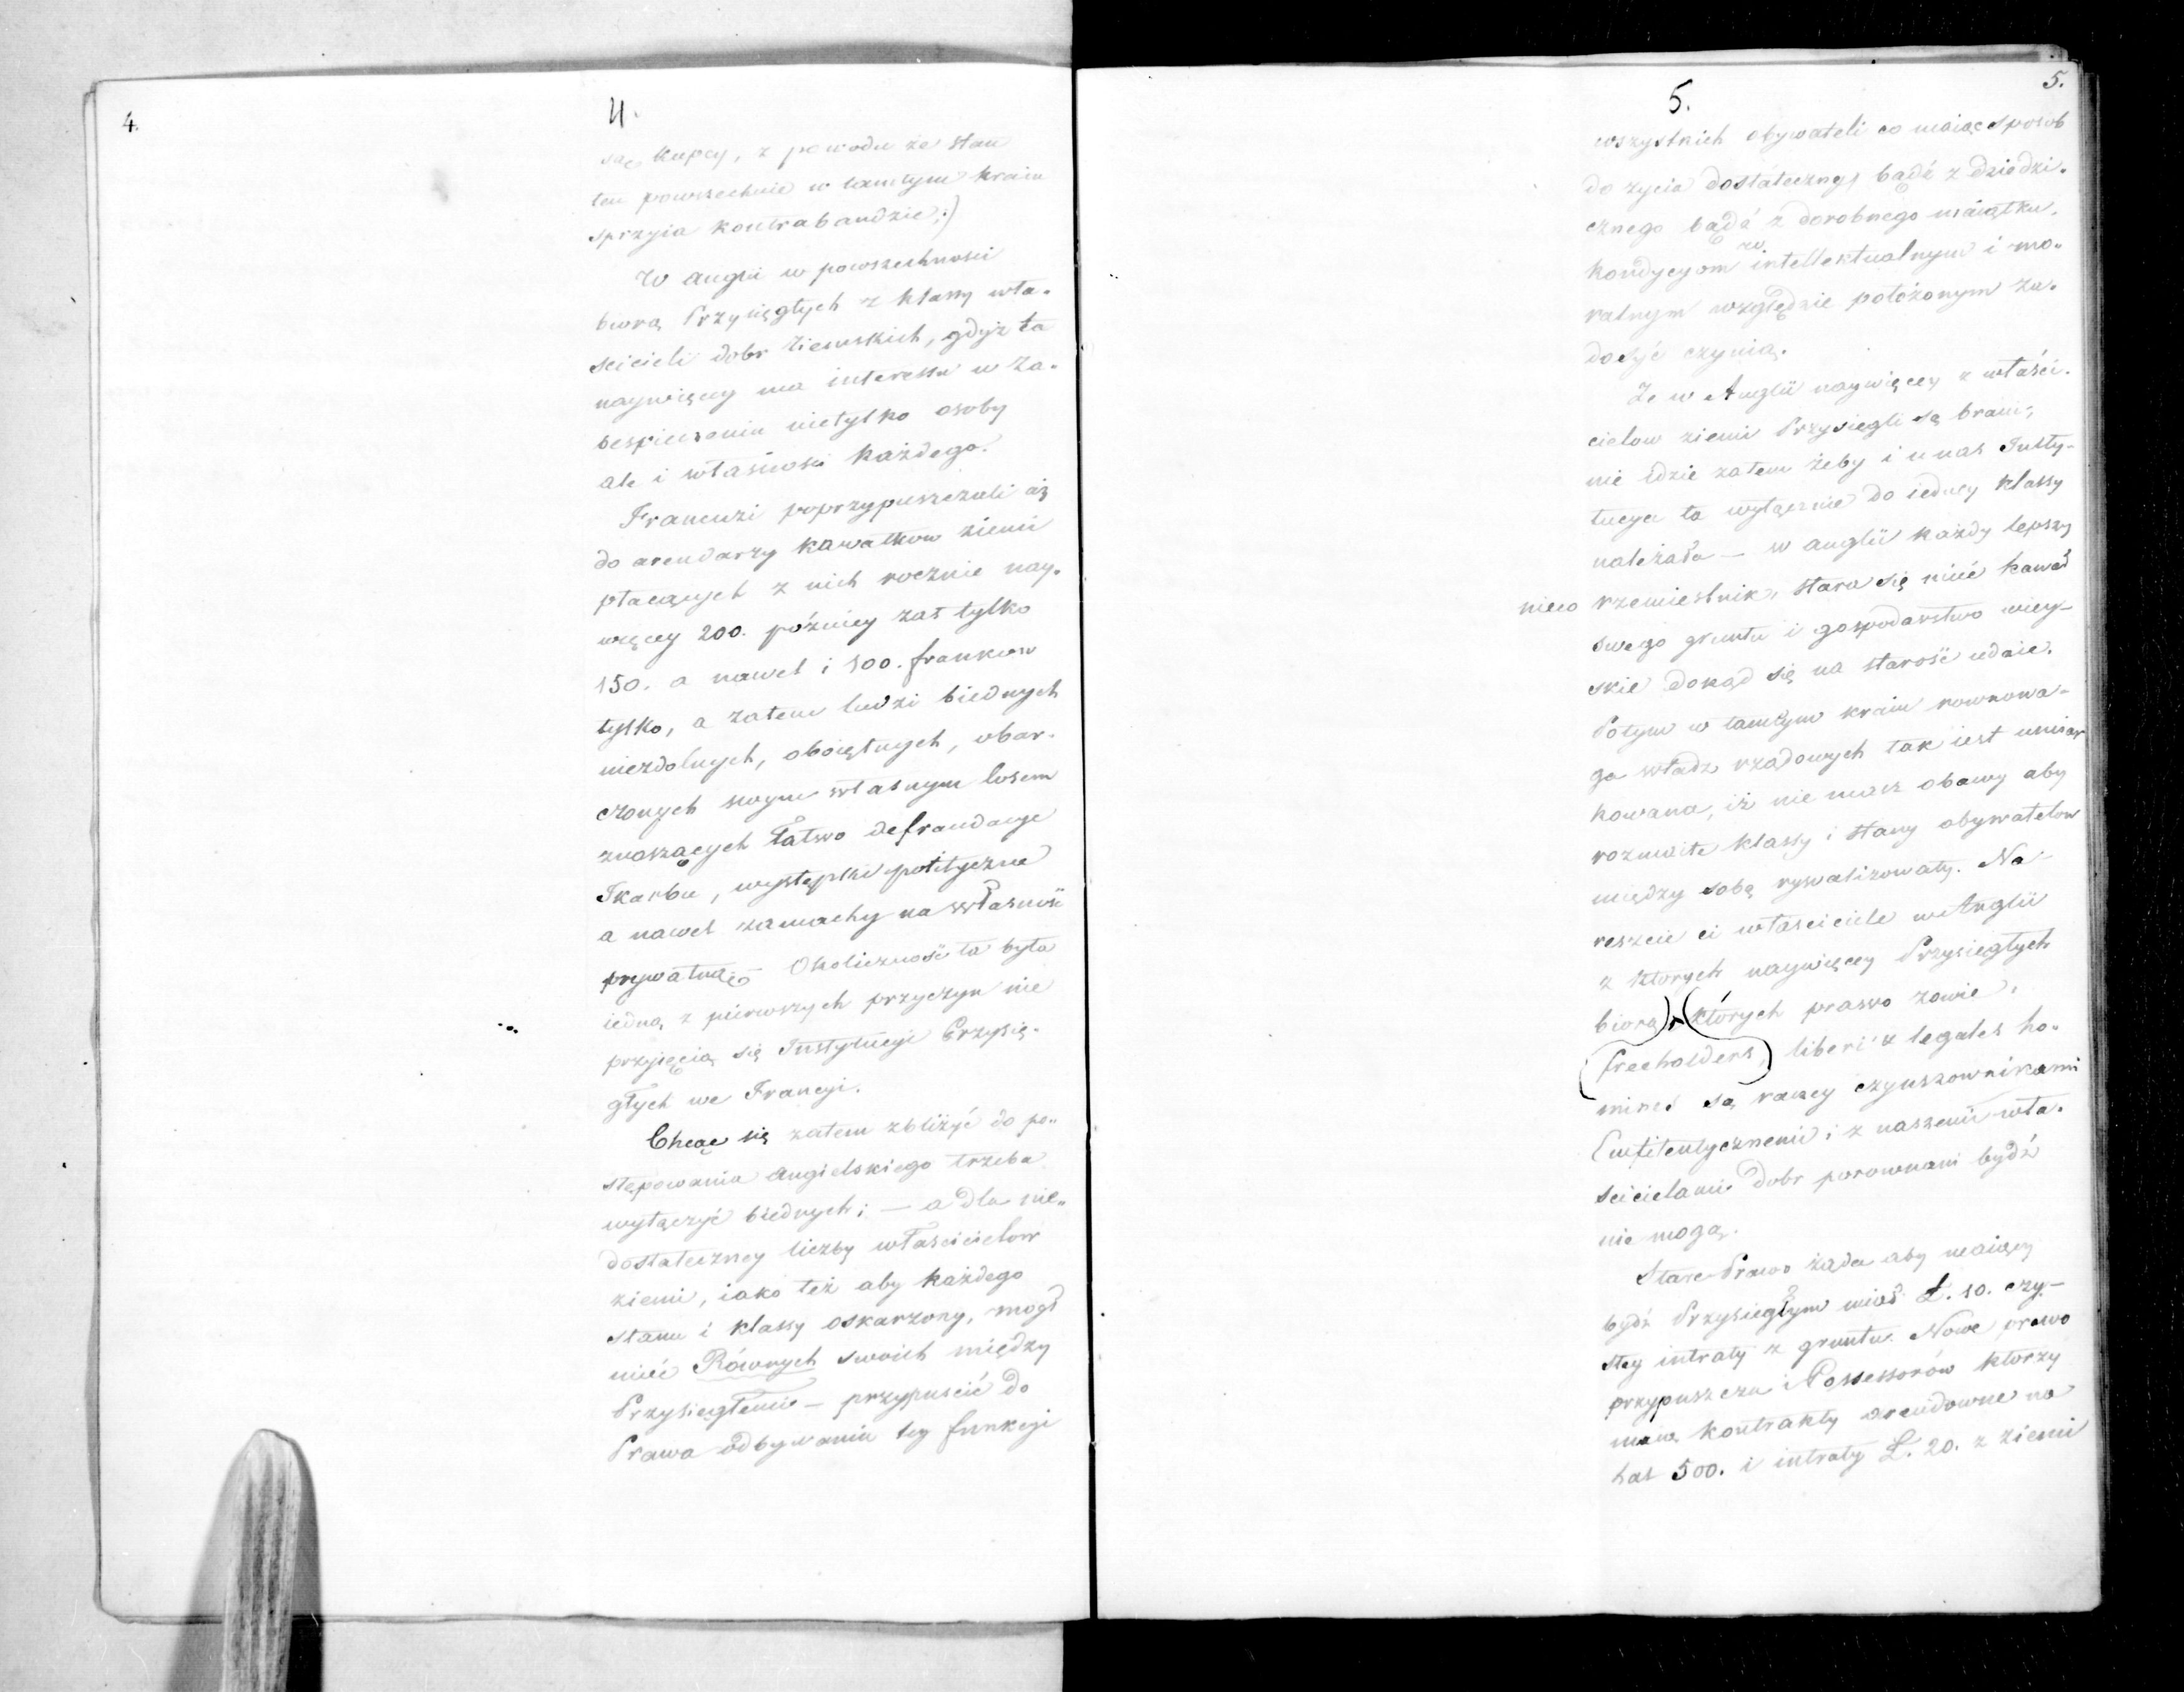 4.
4.
są kupcy, z powodu że stan
ten powszechnie w tamtym kraiu
sprzyia kontrabandzie;)
W Anglii w powszechnosci
biorą Przysięgłych z klassy wła-
scicieli dobr ziemskich, gdyż ta
naywięcey ma interessu w za-
bespieczeniu nietylko osoby
ale i własnosci każdego.
Francuzi poprzypuszczali aż
do arendarzy kawałkow ziemi
płacących z nich rocznie nay-
więcey 200. późniey zas tylko
150. a nawet i 100. frankow
tylko, a zatem ludzi biednych
niezdolnych, oboiętnych, obar-
czonych swym własnym losem
znoszących łatwo defraudacye
Skarbu, występki polityczne
a nawet zamachy na własność
prywatną. – Okoliczność ta była
iedną z pierwszych przyczyn nie
przyięcia się Instytucyi Przysię-
głych we Francyi.
Chcąc się zatem zbliżyć do po-
stępowania Angielskiego trzeba
wyłączyć biednych; – a dla nie-
dostateczney liczby właścicielow
ziemi, iako też aby każdego
stanu i klassy oskarzony, mogł
mieć Równych swoich między
Przysięgłemi – przypuścić do
Prawa odbywania tey funkcyi
5.
5.
wszystkich obywateli co maiąc sposob
do zycia dostateczny, bądź z dziedzi-
cznego bądź z dorobnego maiątku,
kondycyom w intellektualnym i mo-
ralnym względzie położonym za-
dosyć czynią.
Że w Anglii naywięcey z właści-
cielow ziemi Przysiegli są brani,
nie idzie zatem żeby i u nas Insty-
tucya ta wyłącznie do iedney klassy
należała – w Anglii każdy lepszy
nieco rzemieslnik, stara się mieć kawał
swego gruntu i gospodarstwo wiey-
skie dokąd się na starość udaie.
Potym w tamtym kraiu rownowa-
ga władz rządowych tak iest umiar
kowana, iż nie masz obawy aby
rozmaite klassy i stany obywatelow
między sobą rywalizowały. Na-
reszcie ci własciciele w Anglii
z ktorych naywięcey Przysięgłych
biorą, (których prawo zowie,
freeholders,) liberi & legales ho-
mines są raczey czynszownikami
Emfiteutycznemi; z naszemi wła-
scicielami dobr porownani bydź
nie mogą.
Stare Prawo żąda aby maiący
bydź Przysięgłym miał Ł. 10. czy-
stey intraty z gruntu. Nowe prawo
przypuszcza i Possessorów ktorzy
maią kontrakty arendowne na
lat 500. i intraty Ł. 20. z ziemi